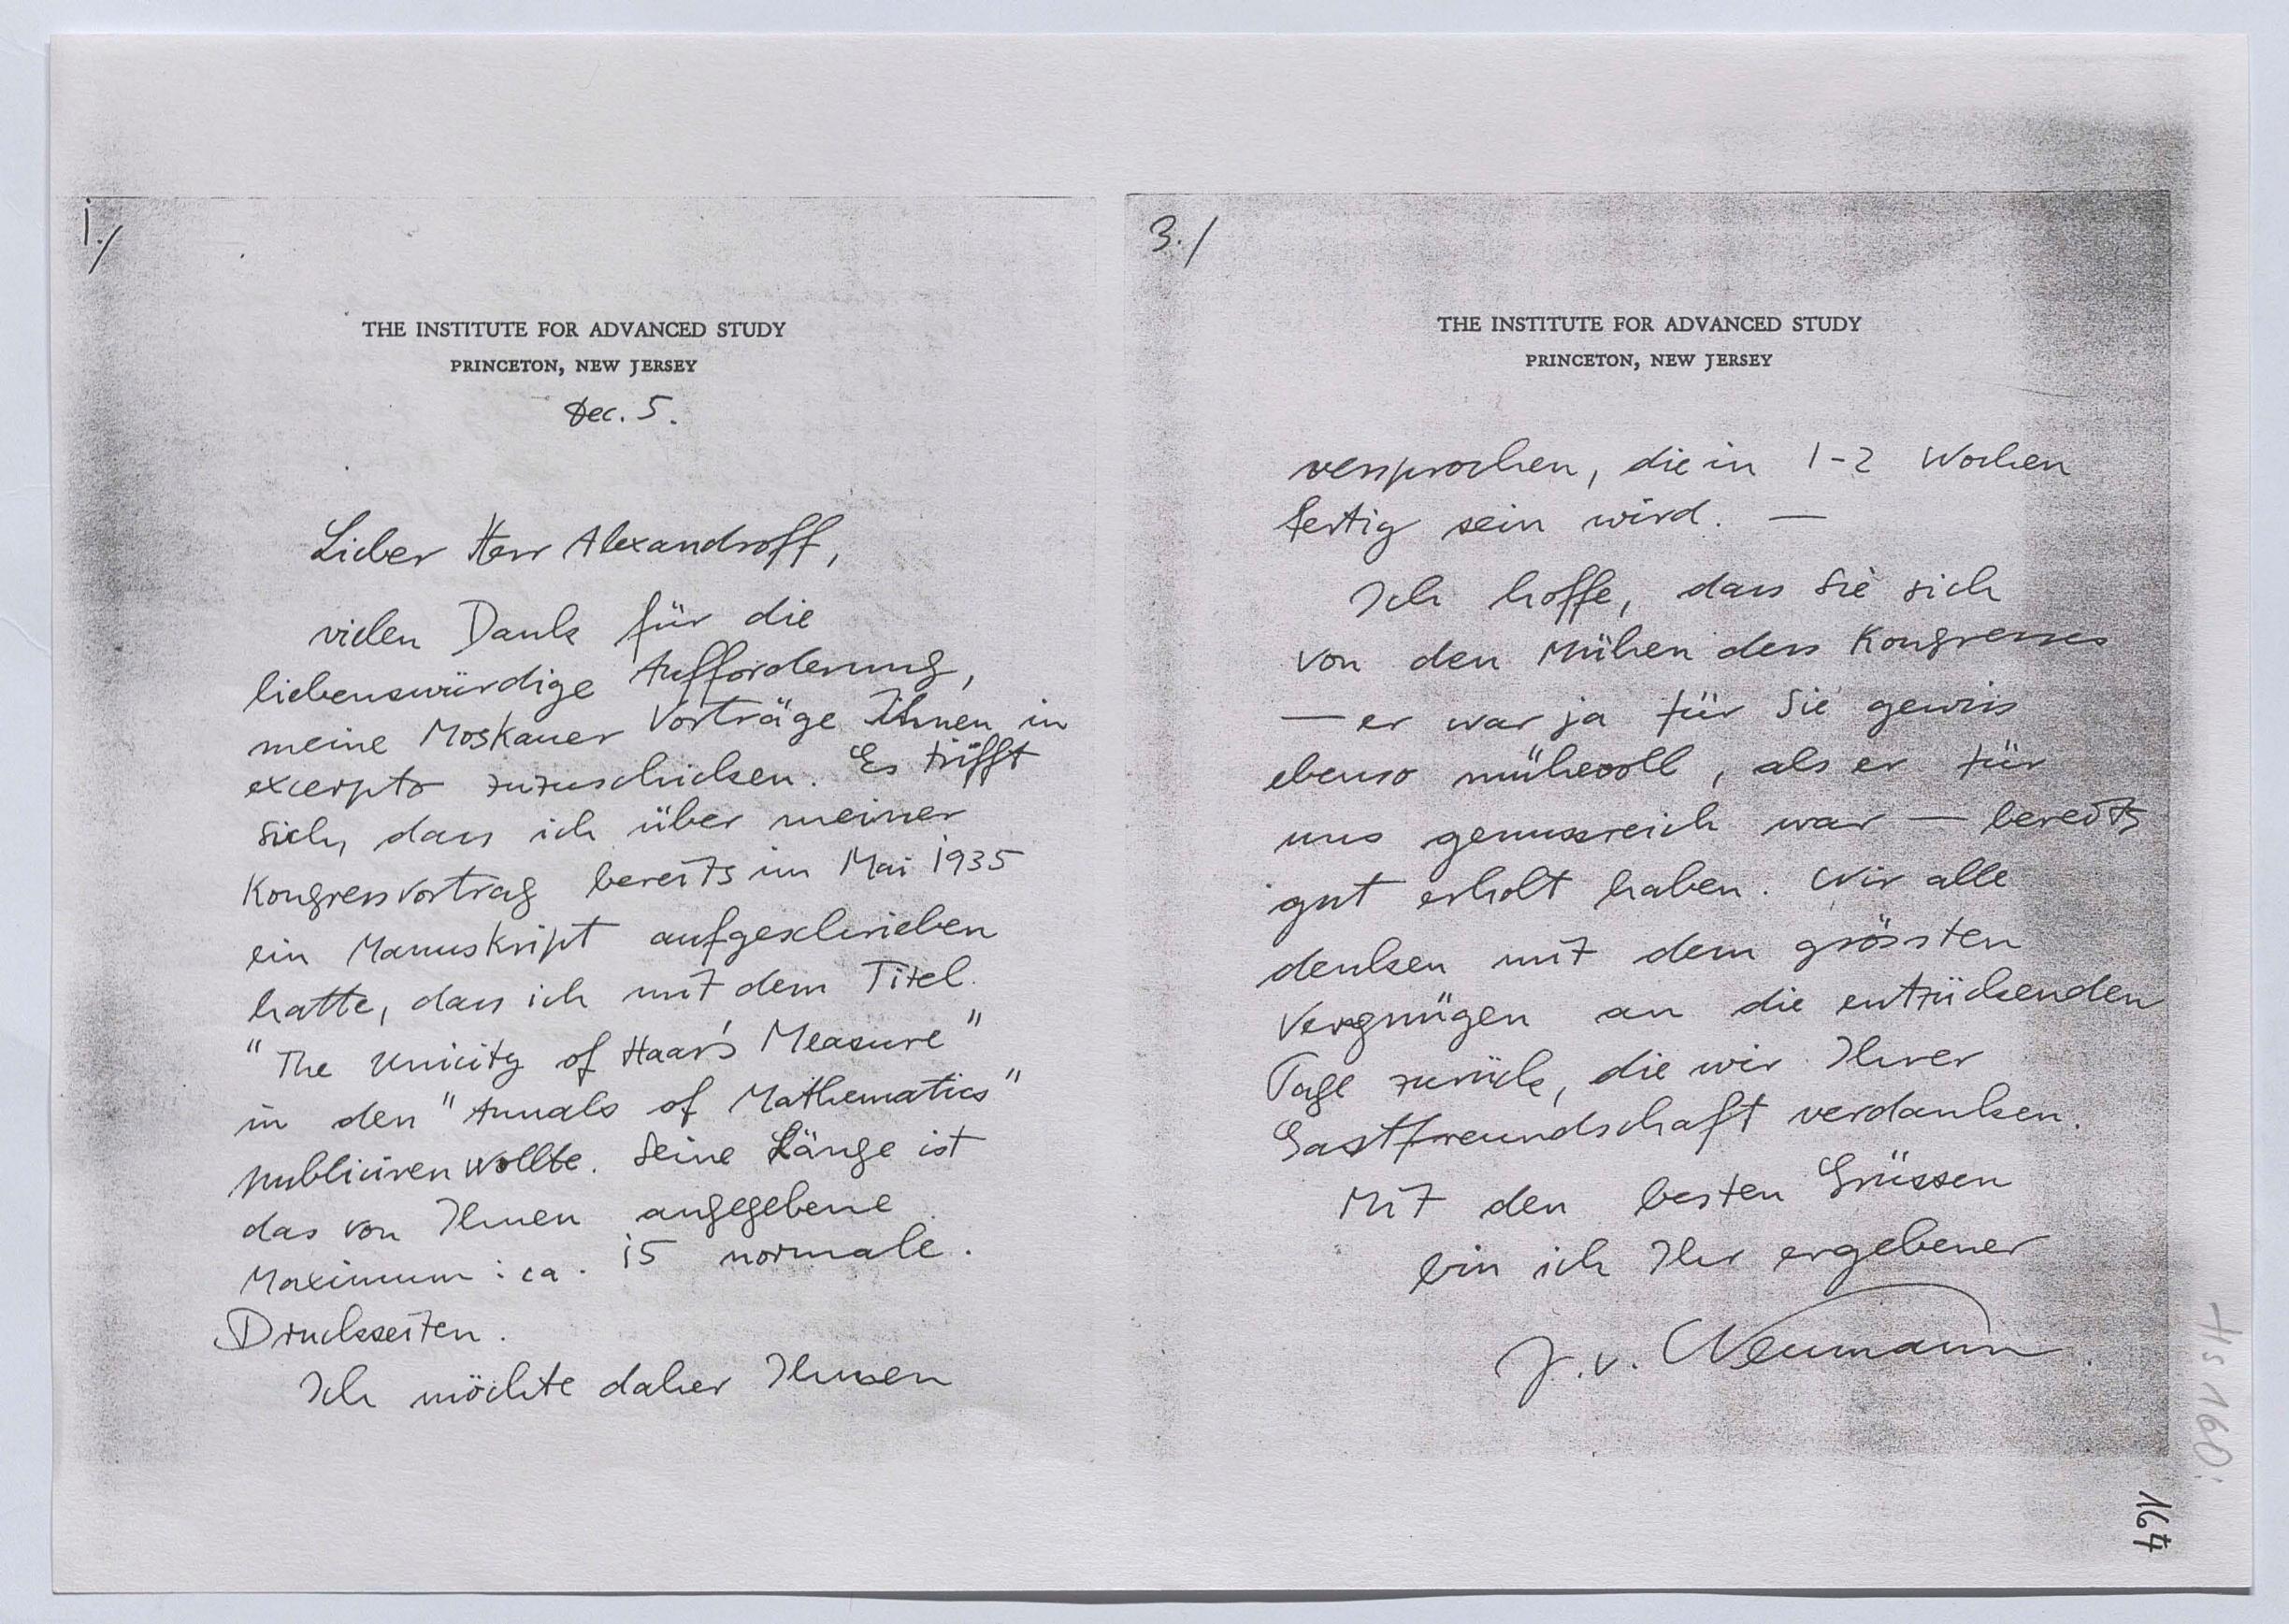 1./
THE INSTITUTE FOR ADVANCED STUDY
PRINCETON, NEW JERSEY
Dec. 5.
Lieber Herr Alexandroff,
vielen Dank für die
liebenswürdige Aufforderung,
meine Moskauer Vorträge Ihnen in
excerpto zuzuschicken. Es trifft
sich, dass ich über meiner
Kongressvortrag bereits im Mai 1935
ein Manuskript aufgeschrieben
hatte, dass ich mit dem Titel
"The Unicity of Haar's Measure"
in den "Annals of Mathematics"
publiciren wollte. Seine Länge ist
das von Ihnen angegebene
Maximum: ca. 15 normale
Druckseiten.
Ich möchte daher Ihnen
3./
THE INSTITUTE FOR ADVANCED STUDY
PRINCETON, NEW JERSEY
versprochen, die in 1-2 Wochen
fertig sein wird. —
Ich hoffe, dass Sie sich
von den Mühen dess Kongresses
— er war ja für Sie gewiss
ebenso mühevoll, als er für
uns genussreich war — bereits
gut erholt haben. Wir alle
denken mit dem grössten
Vergnügen an die entzückenden
Tage zurück, die wir Ihrer
Gastfreundschaft verdanken.
Mit den besten Grüssen
bin ich Ihr ergebener
J. v. Neumann
Hs 160:
164